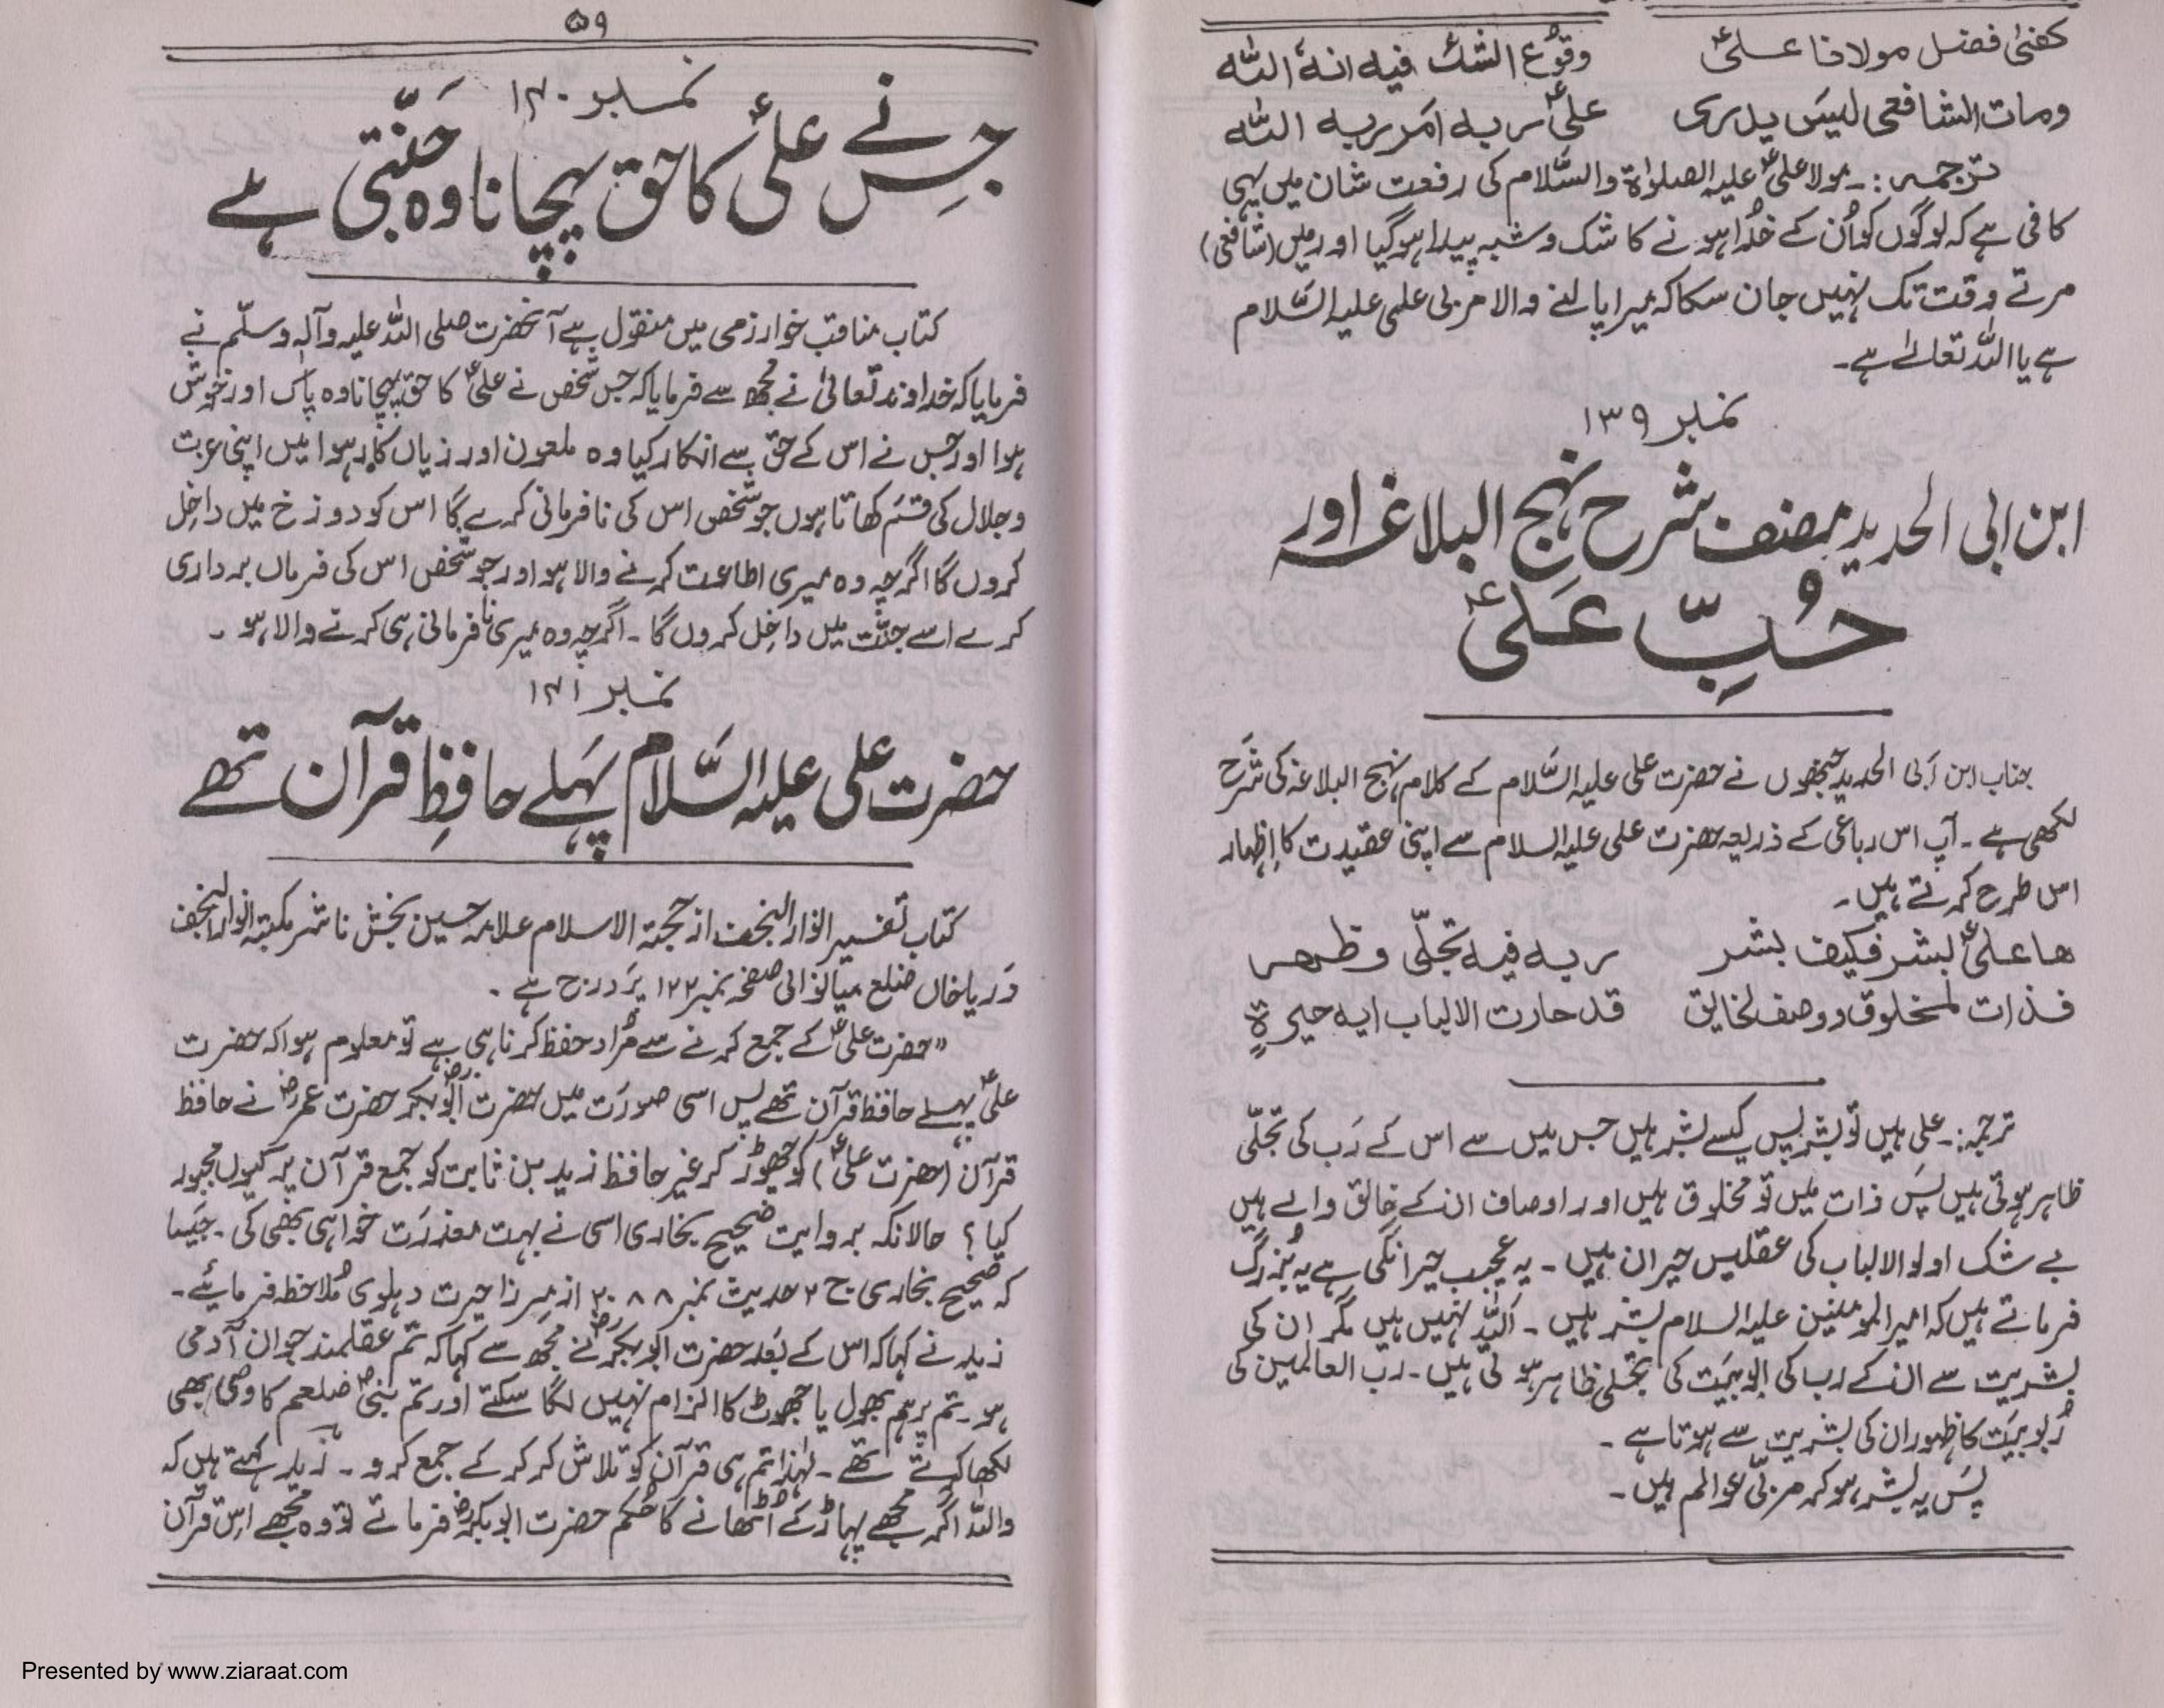 کفیٰ فضل مولانا علیؑ وقوع الشک فیہ انہ اللہ
ومات الشافعی لیس یدری علیؑ ربہ ام ربہ اللہ
ترجمہ:۔ مولا علیؑ علیہ الصلوٰۃ والسّلام کی رفعت شان میں یہی
کافی ہے کہ لوگوں کو اُن کے خُدا ہونے کا شک و شبہ پیدا ہوگیا اور میں (شافعی)
مرتے وقت تک نہیں جان سکا کہ میرا پالنے والا مربی علی علیہ السَّلام
ہے یا اللہ تعالےٰ ہے۔
نمبر ۱۳۹
ابن ابی الحدید مصنف شرح نہج البلاغہ اور
حُبِّ عَلیؑ
جناب ابن اَبی الحدید جنھوں نے حضرت علی علیہ السَّلام کے کلام نہج البلاغہ کی شَرح
لکھی ہے۔ آپ اس رباعی کے ذریعہ حضرت علی علیہ السلام سے اپنی عقیدت کا اِظہار
اس طرح کرتے ہیں۔
ھا علیؑ لبشر فکیف بشر ربہ فیہ تجلّی وظھر
فذات لمخلوق ووصف لخالق قد حارت الالباب ایہ حیرۃٍ
ترجمہ:۔ علی ہیں تو بشر پس کیسے بشر ہیں جس میں سے اس کے رَب کی تجلّی
ظاہر ہوتی ہیں پسَ ذات میں تو مخلوق ہیں اور اوصاف ان کے خالق والے ہیں
بے شک اولو الالباب کی عقلیں حیران ہیں۔ یہ عجیب حیرانگی ہے یہ بُزرگ
فرماتے ہیں کہ امیر المومنین علیہ السلام بشر ہیں۔ اَللہ نہیں ہیں مگر ان کی
بشریت سے ان کے رب کی ربوبیَت کی تجلی ظاہر ہوتی ہیں۔ رب العالمین کی
رُبوبیَت کا ظہور ان کی بشریت سے ہوتا ہے۔
پسَ یہ بشر ہوکر مربّی عوالم ہیں۔
۵۹
نمبر ۱۴۰
جِس نے علیؑ کا حق پہچانا وہ جَنّتی ہے
کتاب مناقب خوارزمی میں منقول ہے آنحضرت صلی اللہ علیہ وآلہٖ وسلّم نے
فرمایا کہ خداوند تعالیٰ نے مُجھ سے فرمایا کہ جس شخص نے علیؑ کا حق پہچانا وہ پاک اور خوش
ہوا اور جس نے اس کے حق سے انکار کیا وہ ملعون اور زیاں کار ہوا میں اپنی عزت
و جلال کی قسَم کھاتا ہوں جو شخص اس کی نافرمانی کرے گا اس کو دوزخ میں داخِل
کروں گا اگرچہ وہ میری اطاعت کرنے والا ہو اور جو شخص اس کی فرماں برداری
کرے اسے جنّت میں داخِل کروں گا۔ اگرچہ وہ میری نافرمانی ہی کرتے والا ہو ۔
نمبر ۱۴۱
حضرت علی علیہ السَّلام پہَلے حافِظِ قرآن تھے
کتاب تفسیر انوار النجف از حجتہ الاسلام علامہ حسین بخش ناشر مکتبہ انوار النجف
دَریا خاں ضلع میانوالی صفحہ نمبر ۱۲۲ پَر درج ہے ۔
”حضرت علیؑ کے جمع کرنے سے مُراد حفظ کرنا ہی ہے تو معلوم ہوا کہ حضرت
علیؑ پہلے حافظ قرآن تھے پس اسی صورَت میں حضرت ابُوبکرؓ حضرت عمرؓ نے حافظ
قرآن (حضرت علیؑ) کو چھوڑ کر غیر حافظ زید بن ثابت کو جمع قرآن پر کیوں مجبور
کیا؟ حالانکہ بروایت صَحیح بخاری اسی نے بہت معذرَت خواہی بھی کی۔ جَیسا
کہ صَحیح بخاری ج ۲ حدیث نمبر ۲۰۸۸ از مِرزا حیرت دہلوی مُلاحظہ فرمائیے۔
زید نے کہا کہ اس کے بَعد حضرت ابوبکرؓ نے مُجھ سے کہا کہ تم عقلمند جوان آدمی
ہو۔ تم پر ہم بھول یا جھوٹ کا الزام نہیں لگا سکتے اور تم نبیؐ صلعم کا وحی بھی
لکھا کرتے تھے۔ لہٰذا تم ہی قرآن کو تلاش کر کر کے جمع کرو۔ زید کہتے ہیں کہ
واللہ اگر مجھے پہاڑ کے اُٹھانے کا حُکم حضرت ابوبکرؓ فرماتے تو وہ مُجھے اس قرآن
Presented by www.ziaraat.com